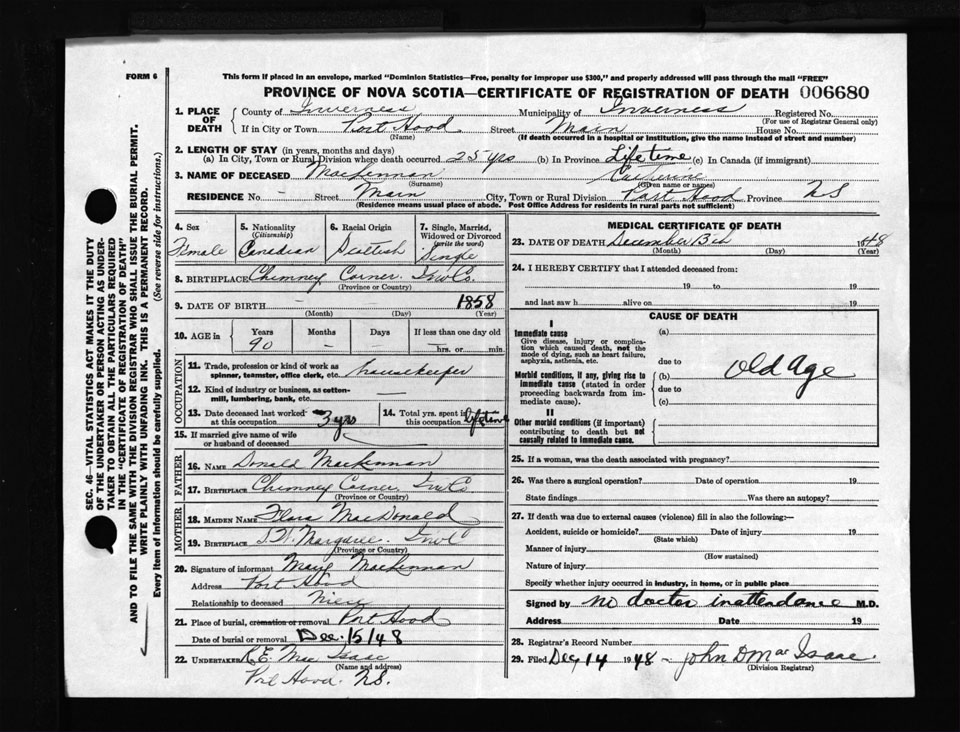 FORM 6
This form if placed in an envelope, marked "Dominion Statistics—Free, penalty for improper use $300," and properly addressed will pass through the mail "FREE"
PROVINCE OF NOVA SCOTIA—CERTIFICATE OF REGISTRATION OF DEATH 006680
SEC. 46—VITAL STATISTICS ACT MAKES IT THE DUTY
OF THE UNDERTAKER OR PERSON ACTING AS UNDER-
TAKER TO OBTAIN ALL THE PARTICULARS REQUIRED
IN THE "CERTIFICATE OF REGISTRATION OF DEATH"
AND TO FILE THE SAME WITH THE DIVISION REGISTRAR WHO SHALL ISSUE THE BURIAL PERMIT.
WRITE PLAINLY WITH UNFADING INK. THIS IS A PERMANENT RECORD.
Every item of information should be carefully supplied. (See reverse side for instructions.)
1. PLACE OF DEATH
County of Inverness Municipality of Inverness Registered No.
(For use of Registrar General only)
If in City or Town Port Hood Street Main House No.
(Name) (If death occurred in a hospital or institution, give the name instead of street and number)
2. LENGTH OF STAY (in years, months and days)
(a) In City, Town or Rural Division where death occurred 25 yrs (b) In Province Lifetime (c) In Canada (if immigrant)
3. NAME OF DECEASED MacLennan Catherine
(Surname) (Given name or names)
RESIDENCE No - Street Main City, Town or Rural Division Port Hood Province NS
(Residence means usual place of abode. Post Office Address for residents in rural parts not sufficient)
4. Sex Female
5. Nationality (Citizenship) Canadian
6. Racial Origin Scottish
7. Single, Married, Widowed or Divorced (write the word) Single
8. BIRTHPLACE Chimney Corner. Inv Co.
(Province or Country)
9. DATE OF BIRTH - 1858
(Month) (Day) (Year)
10. AGE in Years 90 Months - Days If less than one day old hrs. or min.
OCCUPATION
11. Trade, profession or kind of work as spinner, teamster, office clerk, etc. housekeeper
12. Kind of industry or business, as cotton-mill, lumbering, bank, etc.
13. Date deceased last worked at this occupation 3 yrs
14. Total yrs. spent in this occupation lifetime
15. If married give name of wife or husband of deceased
FATHER
16. NAME Donald MacLennan
17. BIRTHPLACE Chimney Corner Inv Co
(Province or Country)
MOTHER
18. MAIDEN NAME Flora MacDonald
19. BIRTHPLACE Margaree
(Province or Country)
20. Signature of informant Mary MacLennan
Address Port Hood
Relationship to deceased niece
21. Place of burial, cremation or removal Port Hood
Date of burial or removal Dec. 15/48
22. UNDERTAKER R.E. MacIsaac
(Name and address)
Port Hood. NS.
MEDICAL CERTIFICATE OF DEATH
23. DATE OF DEATH December 13th 1948
(Month) (Day) (Year)
24. I HEREBY CERTIFY that I attended deceased from:
19 to 19
and last saw h alive on 19
CAUSE OF DEATH
I
Immediate cause
Give disease, injury or complica-
tion which caused death, not the
mode of dying, such as heart failure,
asphyxia, asthenia, etc.
(a)
due to
Morbid conditions, if any, giving rise to
immediate cause (stated in order
proceeding backwards from im-
mediate cause).
(b) Old Age
due to
(c)
II
Other morbid conditions (if important)
contributing to death but not
causally related to immediate cause.
25. If a woman, was the death associated with pregnancy?
26. Was there a surgical operation? Date of operation 19
State findings Was there an autopsy?
27. If death was due to external causes (violence) fill in also the following:—
Accident, suicide or homicide? Date of injury 19
(State which)
Manner of injury
(How sustained)
Nature of injury
Specify whether injury occurred in industry, in home, or in public place
Signed by no doctor in attendance M.D.
Address Date 19
28. Registrar's Record Number
29. Filed Dec 14 1948 - John D MacIsaac.
(Division Registrar)